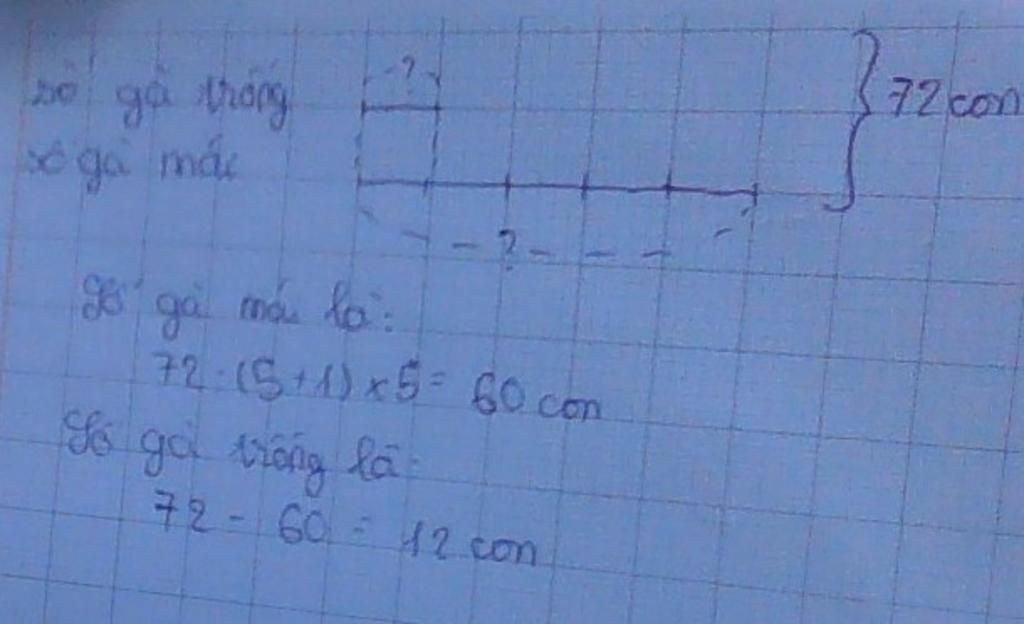 ?
số gà trống
72 con
số gà mái
?
Số gà mái là:
72 : (5 + 1) x 5 = 60 con
Số gà trống là:
72 - 60 = 12 con